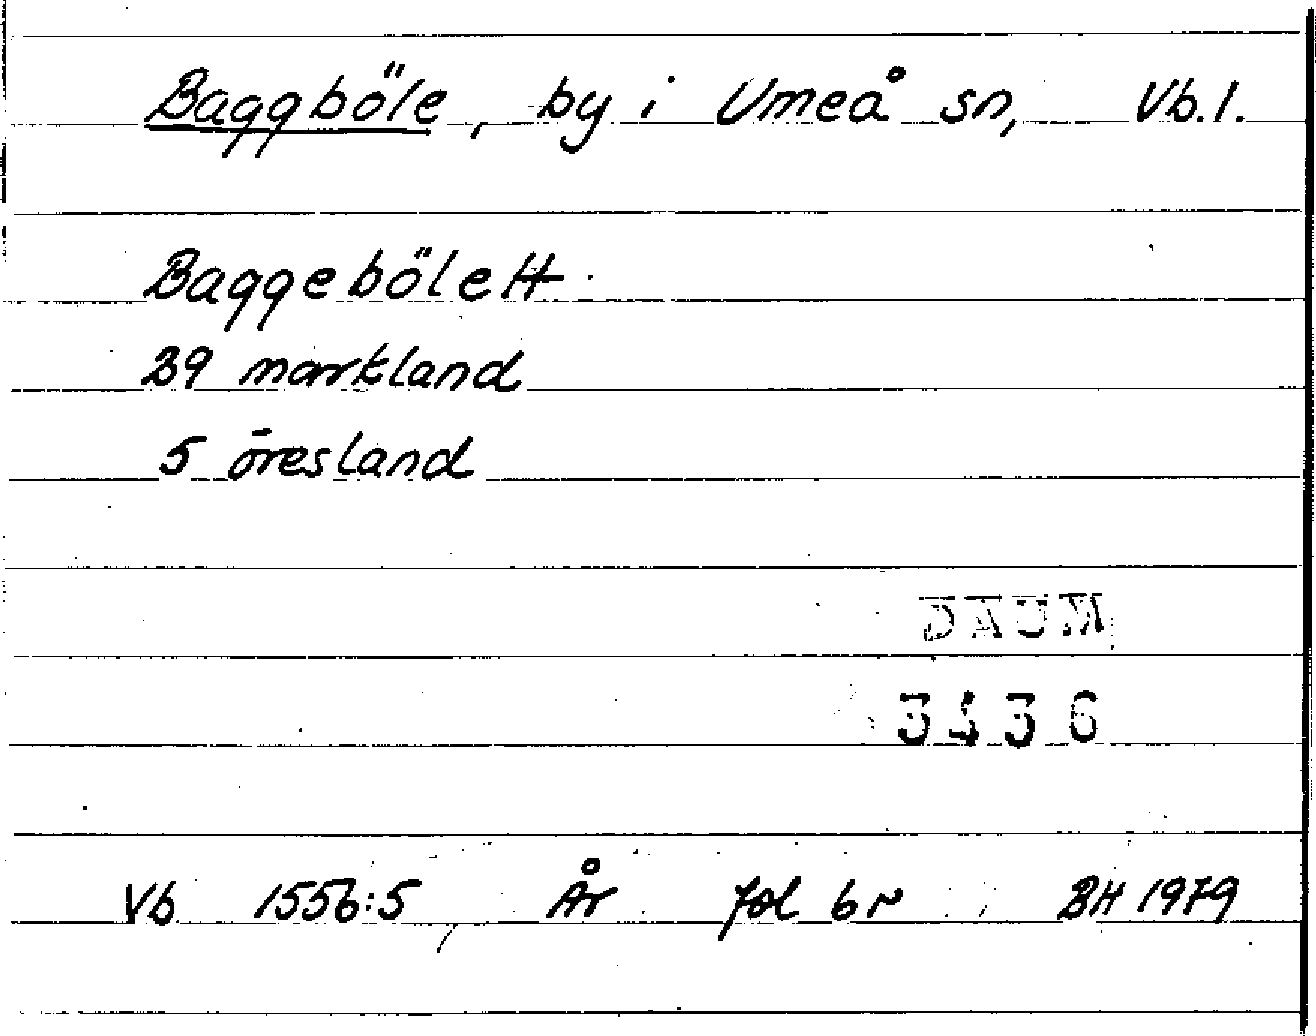 Baggböle, by i Umeå sn, Vb.l.
Baggebölett
29 markland
5 öresland
DAUM
3436
Vb 1556:5, År fol 6r BH 1979